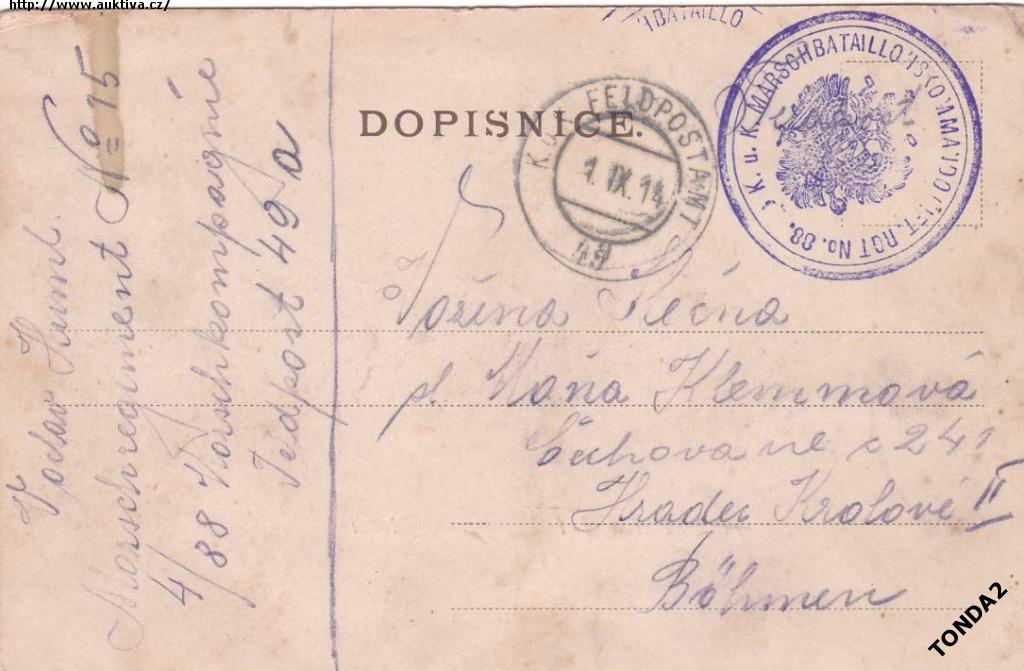 http://www.auktiva.cz/
BATAILLO
K. u. K. MARSCHBATAILLONSKOMMANDO INFT. RGT No. 88.
DOPISNICE.
K.u.K. FELDPOSTAMT
1 IX. 14
49
Vážená Slečna
sl. Máňa Klemmová
ul č 241
Hradec Králové II
Böhmen
Marschregiment No 15
4/88 Marschkompagnie
Feldpost 49 a
TONDA2